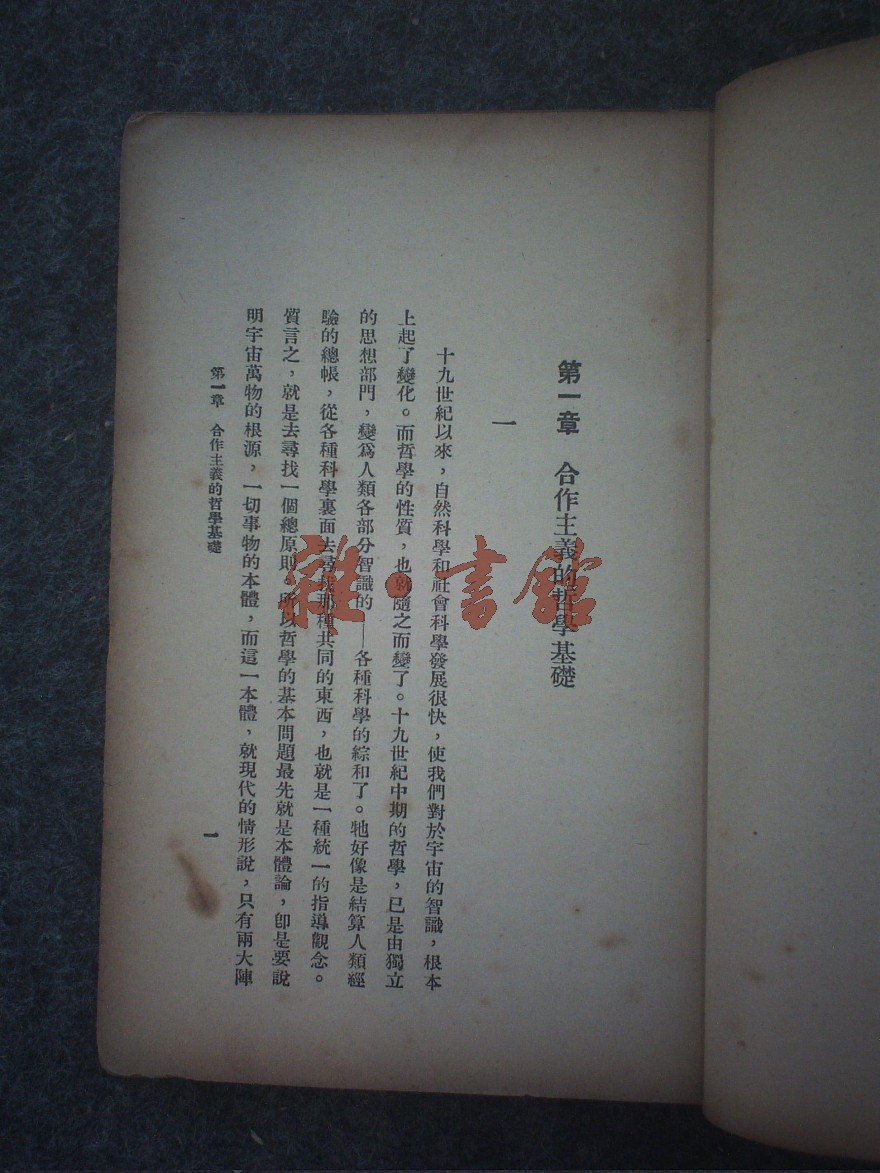 第一章　合作主義的哲學基礎
一
十九世紀以來，自然科學和社會科學發展很快，使我們對於宇宙的智識，根本
上起了變化。而哲學的性質，也就隨之而變了。十九世紀中期的哲學，已是由獨立
的思想部門，變爲人類各部分智識的——各種科學的綜和了。牠好像是結算人類經
驗的總帳，從各種科學裏面去尋找那種共同的東西，也就是一種統一的指導觀念。
質言之，就是去尋找一個總原則。所以哲學的基本問題最先就是本體論，卽是要說
明宇宙萬物的根源，一切事物的本體，而這一本體，就現代的情形說，只有兩大陣
第一章　合作主義的哲學基礎
一
雜·書館